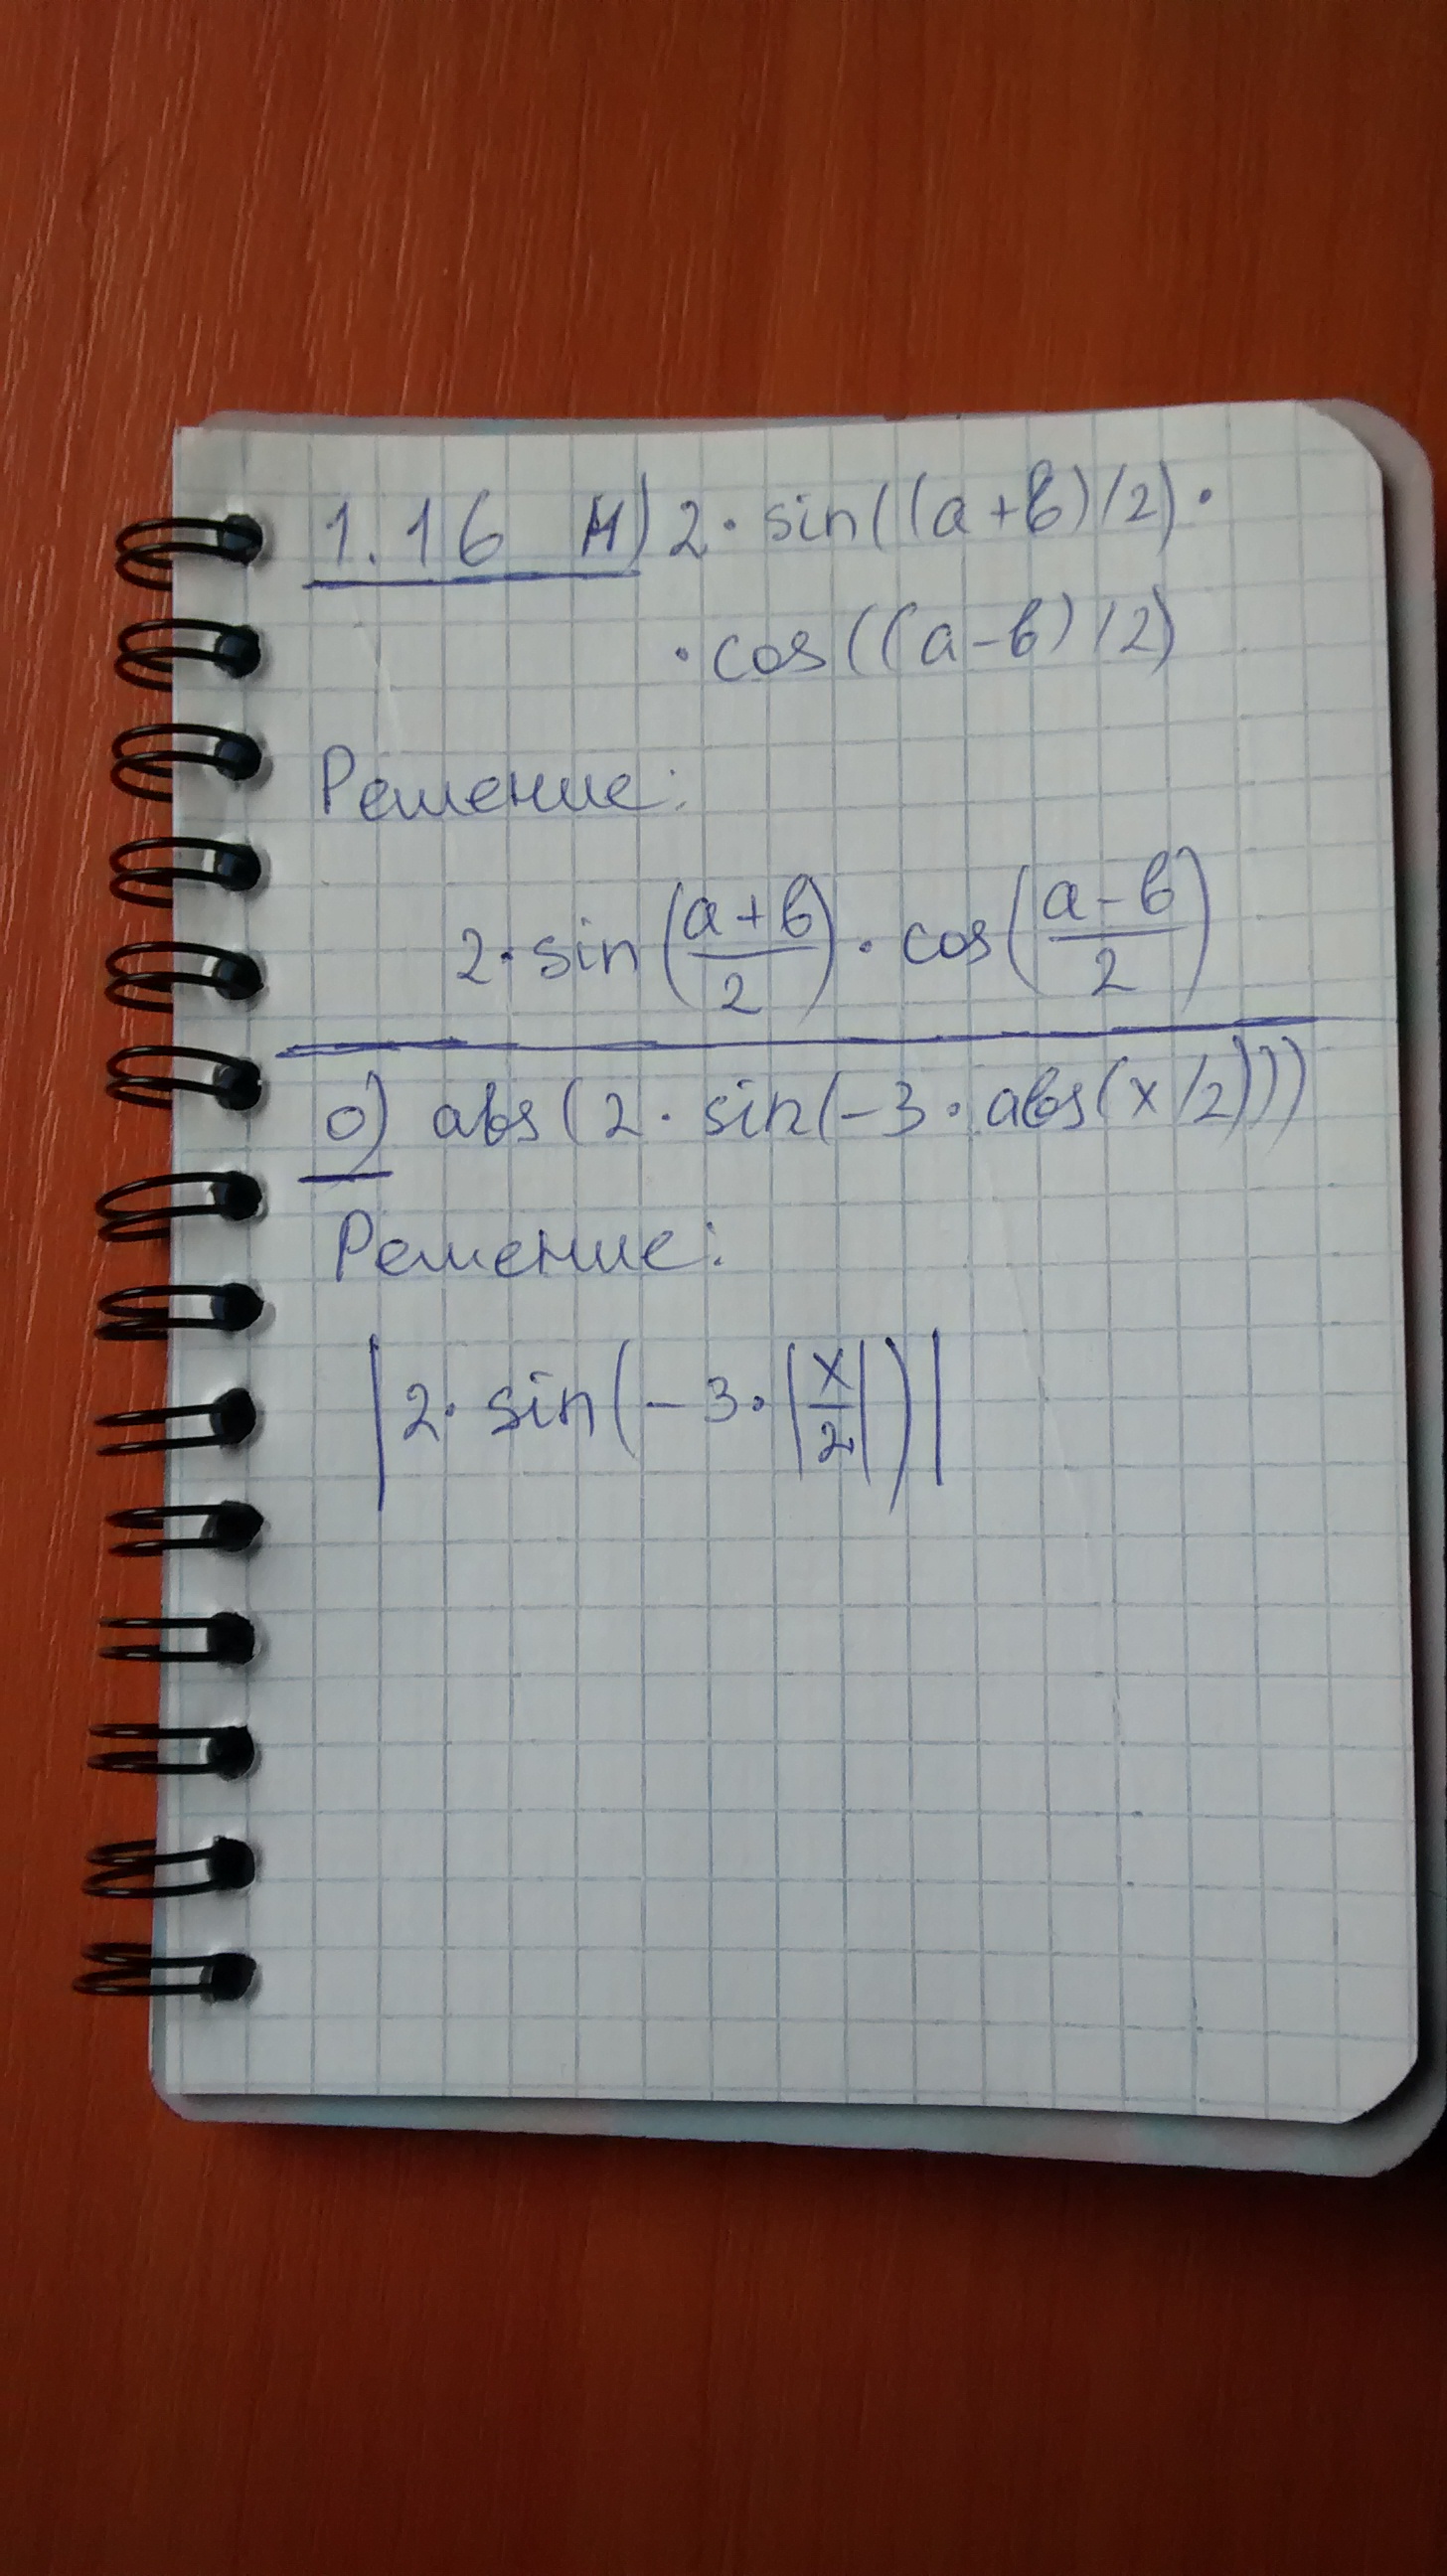 1.16 н) 2·sin((a+b)/2)·
·cos((a-b)/2)
Решение:
2·sin(\frac{a+b}{2})·cos(\frac{a-b}{2})
о) abs(2·sin(-3·abs(x/2)))
Решение:
|2·sin(-3·|\frac{x}{2}|)|